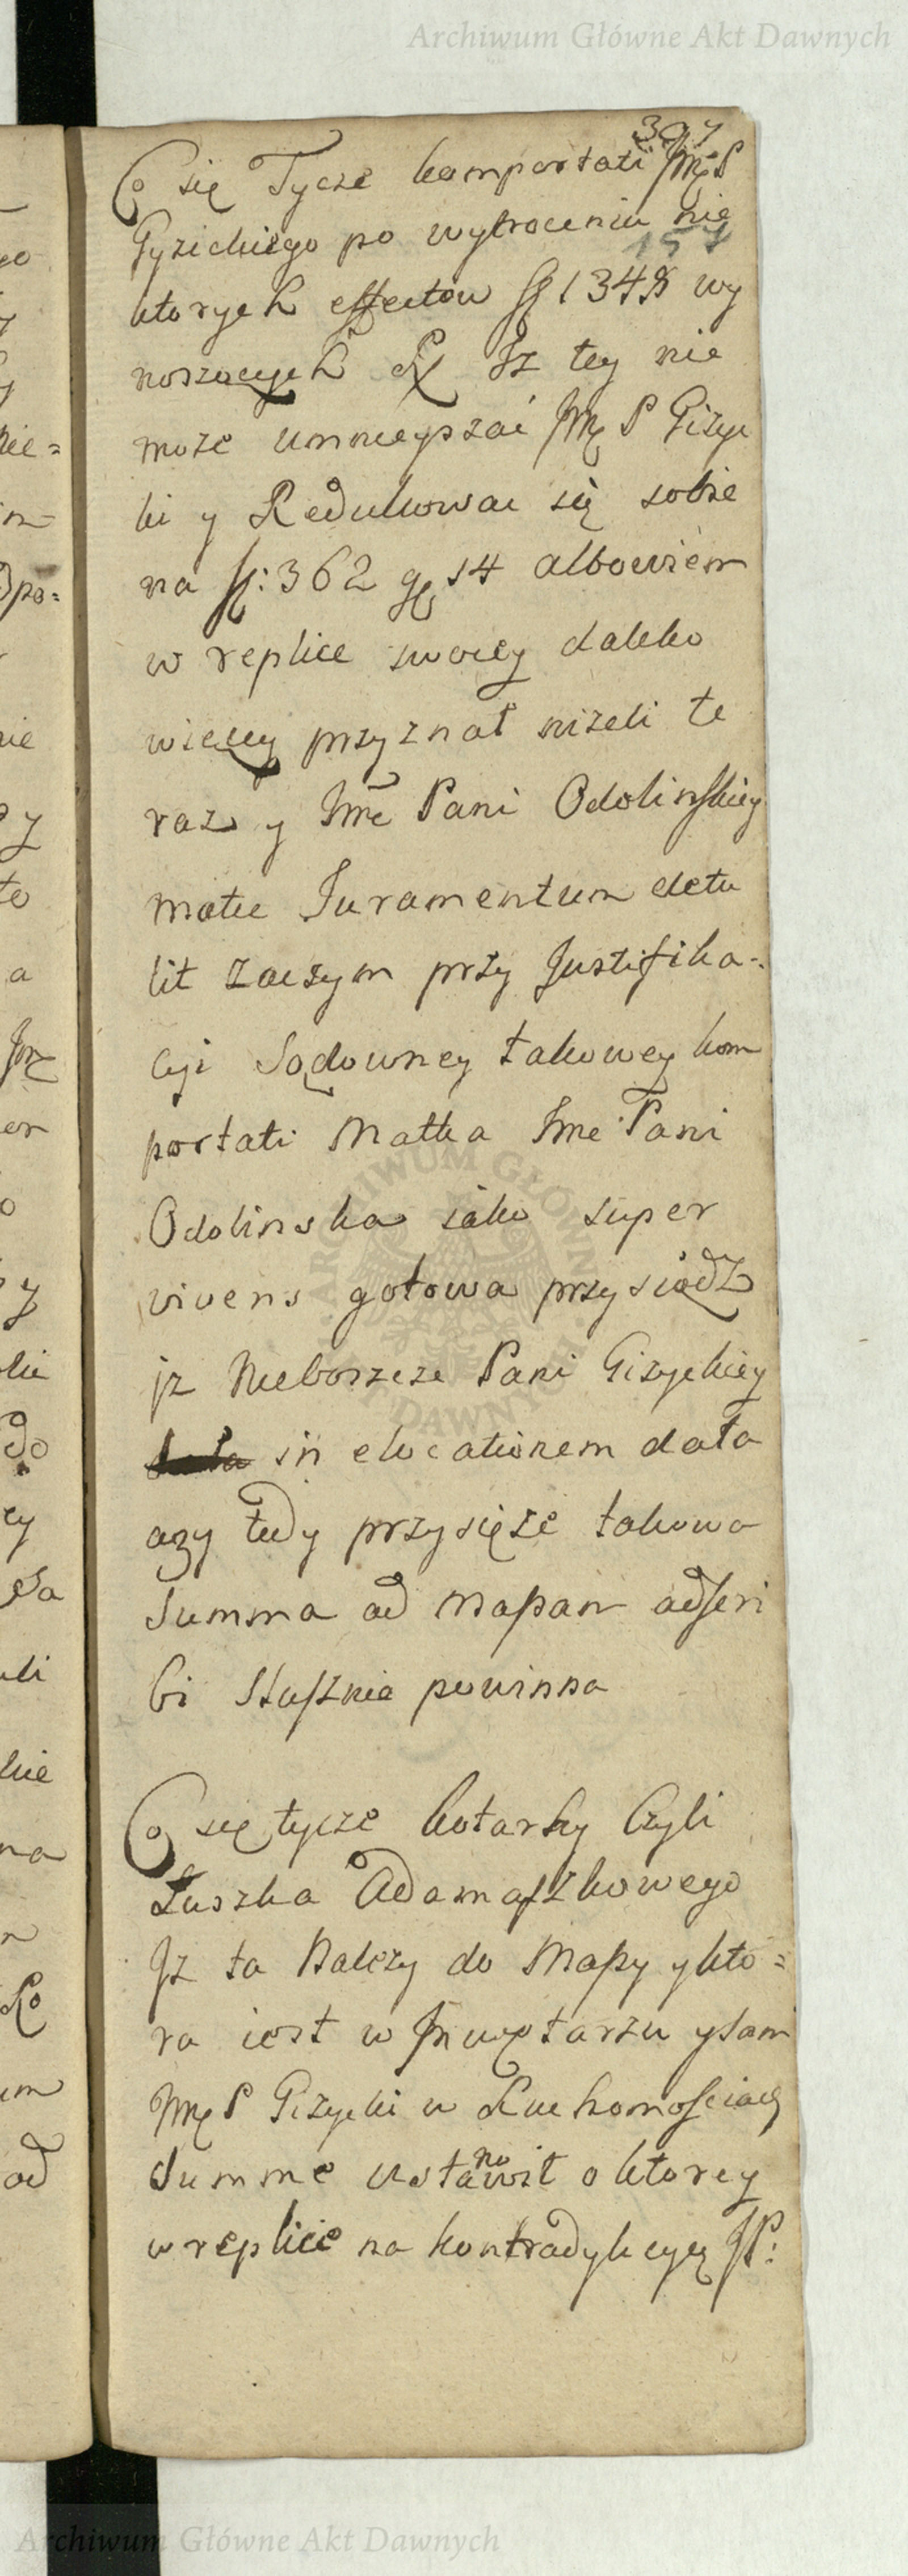 Archiwum Główne Akt Dawnych
397
Co się Tycze komportati JMę P
Gyzickiego po wytroceniu nie
157
ktorych effectow fl 1348 wy
noszących Rx Jz tey nie
moze umnieyszać JMę P Gizyc
ki y Redukowac się sobie
na fl: 362 gr 14 albowiem
w replice swoiey daleko
więcey przyznał nizeli te
raz y Jme Pani Odolinskiey
matce Juramentum detu
lit zaczym przy Justifika-
cyi Sądowney takowey kom
portati Matka Jme Pani
Odolinska iako super
vivens gotowa przysiądz
jz Nieboszcze Pani Gizyckiey
in elocationem data
azy tedy przysięze takowa
Summa ad Mapam adscri
bi Słusznie powinna
Co się tycze kotarky Czyli
Łuszka Adamaszkowego
Jz ta Nalezy do Mapy y kto=
ra iest w Jnwętarzu y sam
JMę P Gizycki w Ruchomosciach
Summe ustanowił o ktorey
w replice na kontradykcyę JP:
ARCHIWUM GŁÓWNE
AKT DAWNYCH
Archiwum Główne Akt Dawnych